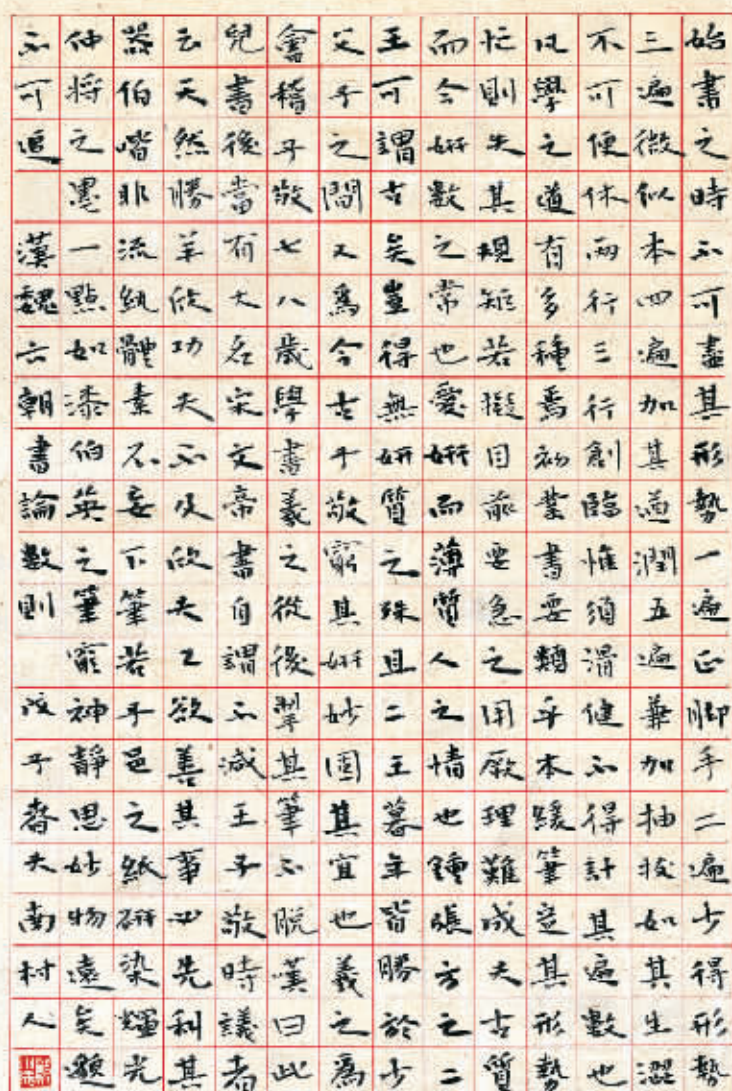 始書之時不可盡其形勢一遍正脚手二遍少得形勢
三遍微似本四遍加其遒潤五遍兼加抽拔如其生澀
不可便休兩行三行創臨惟須滑健不得計其遍數也
凡學之道有多種焉初業書要類乎本緩筆定其形勢
忙則失其規矩若擬目前要急之用厥理難成夫古質
而今妍數之常也愛妍而薄質人之情也鍾張方之二
王可謂古矣豈得無妍質之殊且二王暮年皆勝於少
父子之間又爲今古子敬窮其妍妙固其宜也羲之爲
會稽子敬七八歲學書羲之從後掣其筆不脫嘆曰此
兒書後當有大名宋文帝書自謂不減王子敬時議者
云天然勝羊欣功夫不及欣夫工欲善其事必先利其
器伯喈非流紈體素不妄下筆若子邕之紙研染輝光
仲將之墨一點如漆伯英之筆窮神靜思妙物遠矣邈
不可追 漢魏六朝書論數則 子春夫南村人